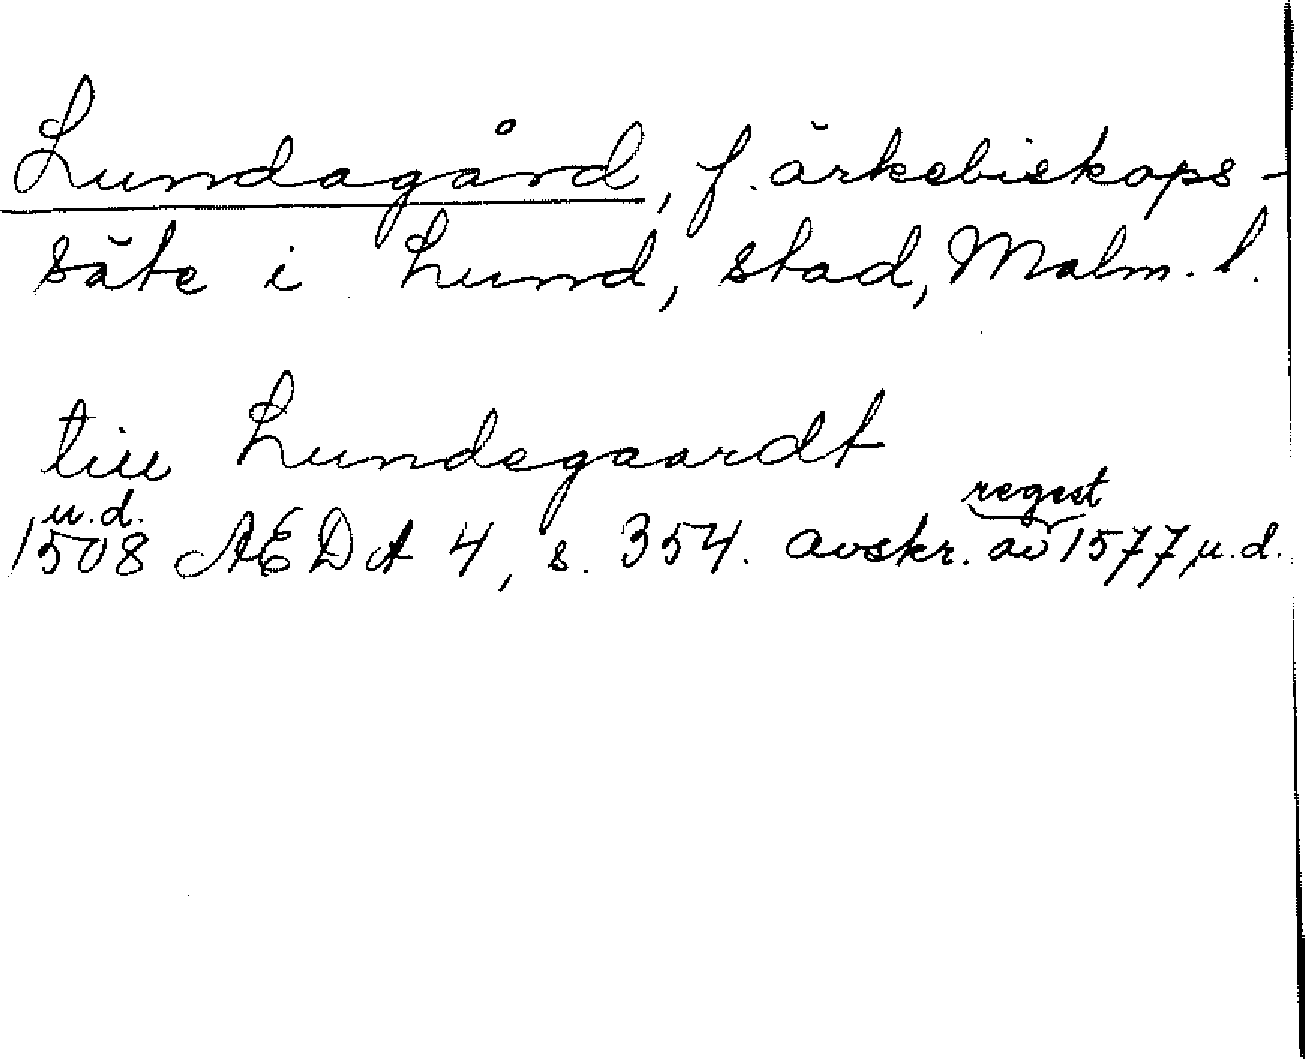 Lundagård, f. ärkebiskops-
säte i Lund, stad, Malm. l.
till Lundegaardt
u.d. regest
1508 ÆDA 4, s. 354. avskr. av 1577 u.d.